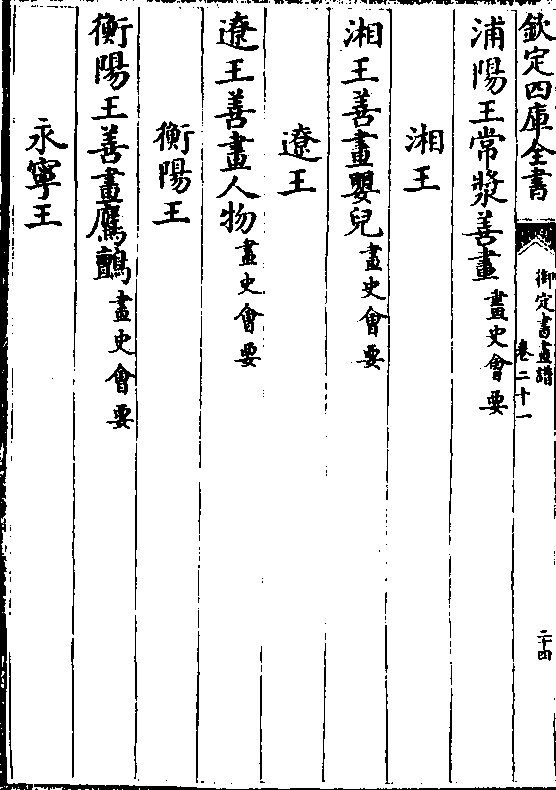 欽定四庫全書
御定書畫譜
卷二十一
二十四
浦陽王常漿善畫畫史會要
湘王
湘王善畫嬰兒畫史會要
遼王
遼王善畫人物畫史會要
衡陽王
衡陽王善畫鷹鸇畫史會要
永寧王